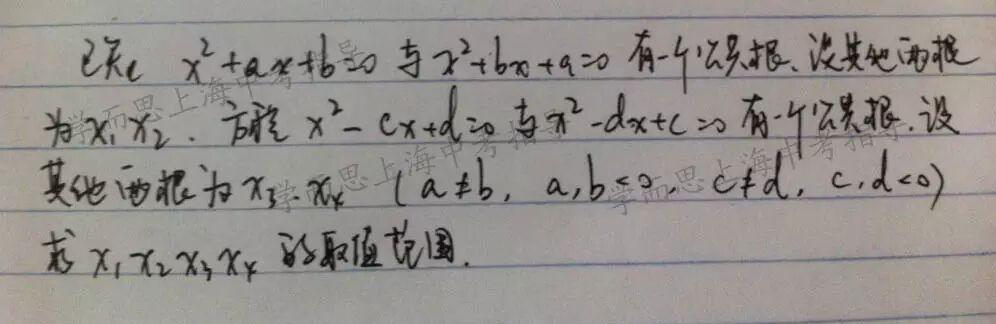 已知 x²+ax+b=0 与 x²+bx+a=0 有一个公共根、设其他两根
为 x₁ x₂. 方程 x²-cx+d=0 与 x²-dx+c=0 有一个公共根. 设
其他两根为 x₃、x₄ (a≠b, a,b<0, c≠d, c,d<0)
求 x₁ x₂ x₃ x₄ 的取值范围.
学而思上海中考指导
学而思上海中考指导